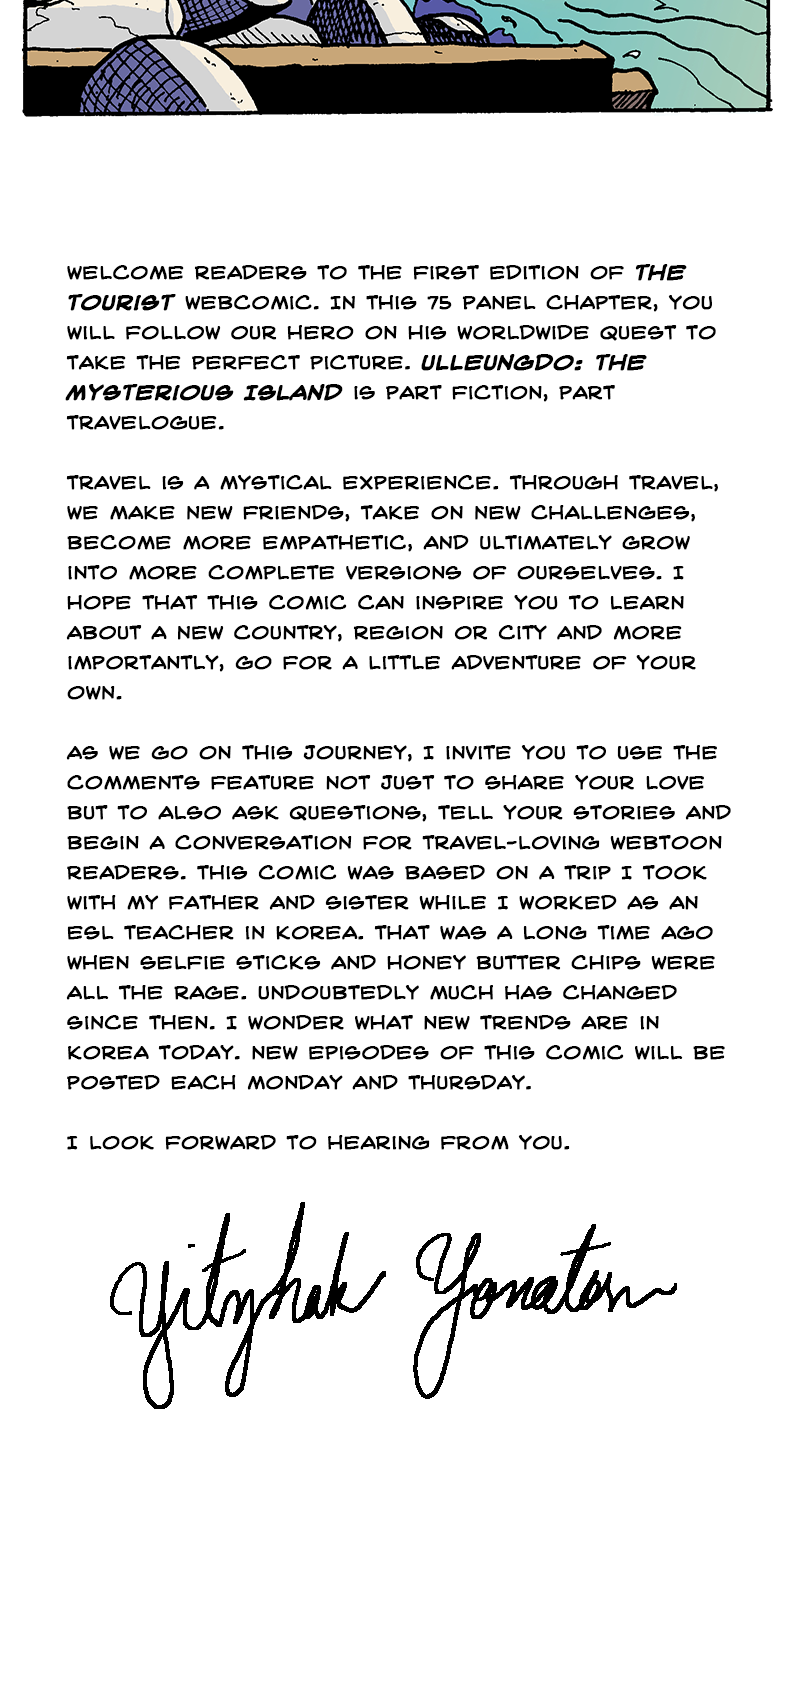 WELCOME READERS TO THE FIRST EDITION OF THE
TOURIST WEBCOMIC. IN THIS 75 PANEL CHAPTER, YOU
WILL FOLLOW OUR HERO ON HIS WORLDWIDE QUEST TO
TAKE THE PERFECT PICTURE. ULLEUNGDO: THE
MYSTERIOUS ISLAND IS PART FICTION, PART
TRAVELOGUE.
TRAVEL IS A MYSTICAL EXPERIENCE. THROUGH TRAVEL,
WE MAKE NEW FRIENDS, TAKE ON NEW CHALLENGES,
BECOME MORE EMPATHETIC, AND ULTIMATELY GROW
INTO MORE COMPLETE VERSIONS OF OURSELVES. I
HOPE THAT THIS COMIC CAN INSPIRE YOU TO LEARN
ABOUT A NEW COUNTRY, REGION OR CITY AND MORE
IMPORTANTLY, GO FOR A LITTLE ADVENTURE OF YOUR
OWN.
AS WE GO ON THIS JOURNEY, I INVITE YOU TO USE THE
COMMENTS FEATURE NOT JUST TO SHARE YOUR LOVE
BUT TO ALSO ASK QUESTIONS, TELL YOUR STORIES AND
BEGIN A CONVERSATION FOR TRAVEL-LOVING WEBTOON
READERS. THIS COMIC WAS BASED ON A TRIP I TOOK
WITH MY FATHER AND SISTER WHILE I WORKED AS AN
ESL TEACHER IN KOREA. THAT WAS A LONG TIME AGO
WHEN SELFIE STICKS AND HONEY BUTTER CHIPS WERE
ALL THE RAGE. UNDOUBTEDLY MUCH HAS CHANGED
SINCE THEN. I WONDER WHAT NEW TRENDS ARE IN
KOREA TODAY. NEW EPISODES OF THIS COMIC WILL BE
POSTED EACH MONDAY AND THURSDAY.
I LOOK FORWARD TO HEARING FROM YOU.
Yitzhak Yonatan